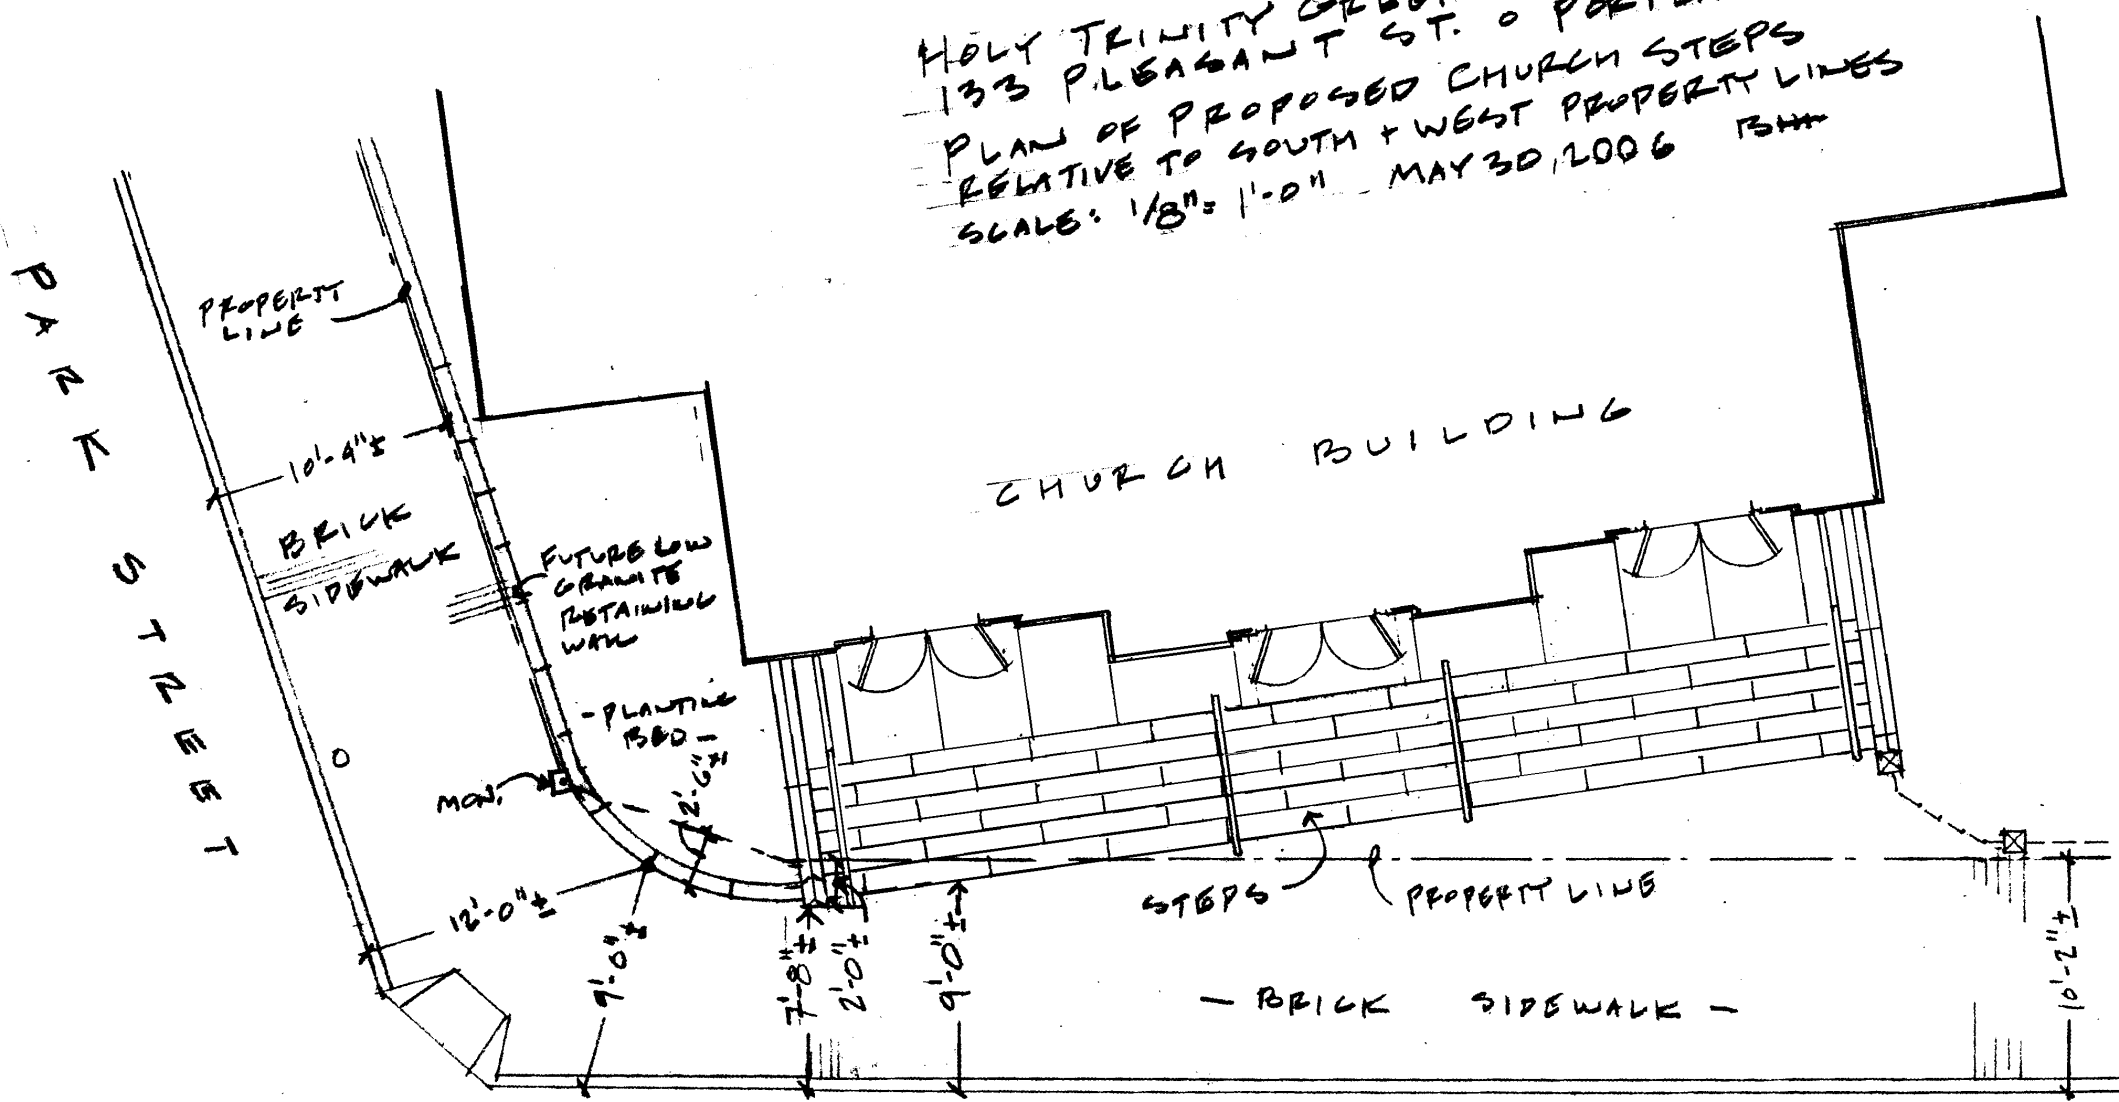 HOLY TRINITY
133 PLEASANT ST. o
PLAN OF PROPOSED CHURCH STEPS
RELATIVE TO SOUTH + WEST PROPERTY LINES
SCALE: 1/8"= 1'-0" MAY 30, 2006
PARK STREET
PROPERTY
LINE
10'-4"±
BRICK
SIDEWALK
FUTURE LOW
GRANITE
RETAINING
WALL
CHURCH BUILDING
- PLANTING
BED -
MON.
2'-6"±
12'-0"±
9'-0"±
7'-8"±
2'-0"±
9'-0"±
STEPS
PROPERTY LINE
10'-2"±
- BRICK SIDEWALK -